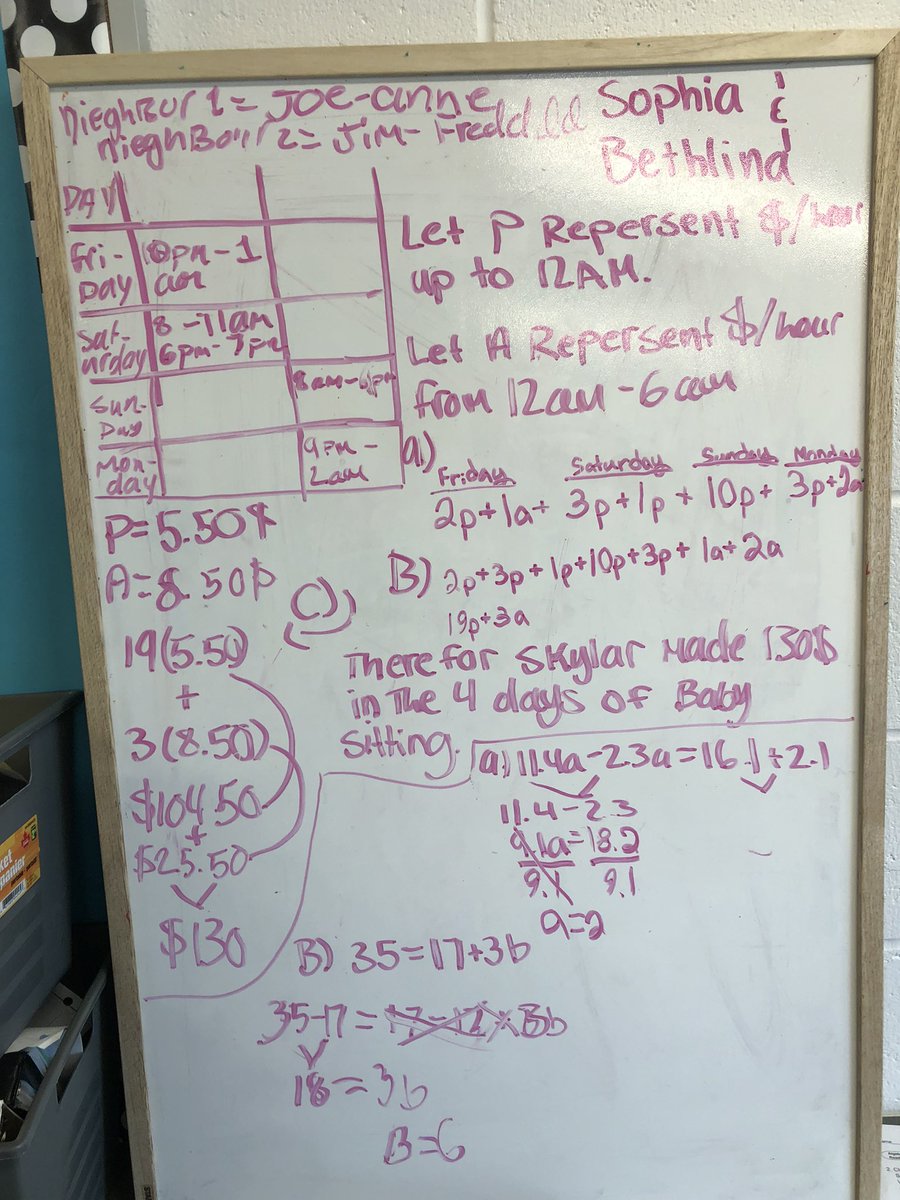 NieghBur 1 = JOE-anne
nieghBour 2 = Jim-
Sophia &
Bethlind
DAY
Fri-
Day
10pm-1
am
Sat-
urday
8-11am
6pm-7pm
Sun-
Day
8am-6pm
Mon-
day
9pm-
2am
Let P Repersent $/hour
up to 12AM.
Let A Repersent $/hour
from 12am-6am
a)
Friday Saturday Sunday Monday
2p+1a+ 3p+1p+ 10p+ 3p+2a
P=5.50$
A=8.50$
B) 2p+3p+1p+10p+3p+1a+2a
19p+3a
C)
19(5.50)
+
3(8.50)
$104.50
+
$25.50
$130
There for Skylar made 130$
in the 4 days of Baby
sitting.
a) 11.4a-2.3a=16.1+2.1
11.4-2.3
9.1a=18.2
9.1 9.1
a=2
B) 35=17+3b
35-17= 17-17 3b
18=3b
B=6